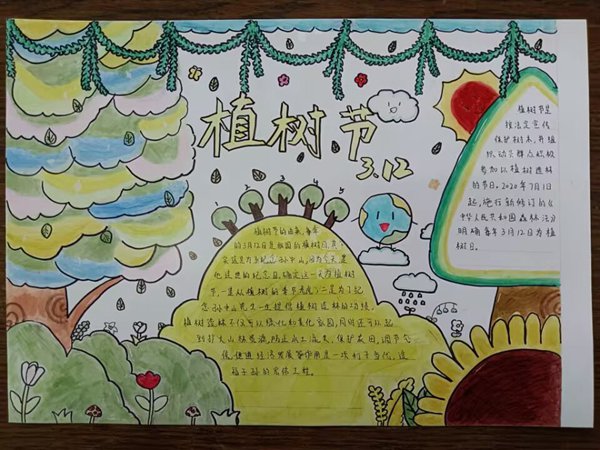 植树节
3.12
1 2 3 4 5
植树节是
按法定宣传
保护树木,并组
织动员群众积极
参加以植树造林
的节日。2020年7月1日
起,施行新修订的《
中华人民共和国森林法》
明确每年3月12日为植
树日。
植树节的由来,每年
的3月12日是我国的植树日,其
实这是为了纪念孙中山,因为今天是
他逝世的纪念日,确定这一天为植树
节,一是从植树的季节考虑;二是为了纪
念孙中山先生一生提倡植树造林的功绩。
植树造林不仅可以绿化和美化家园,同时还可以起
到扩大山林资源、防止水土流失、保护农田、调节气
候、促进经济发展等作用是一项利于当代、造
福子孙的宏伟工程。